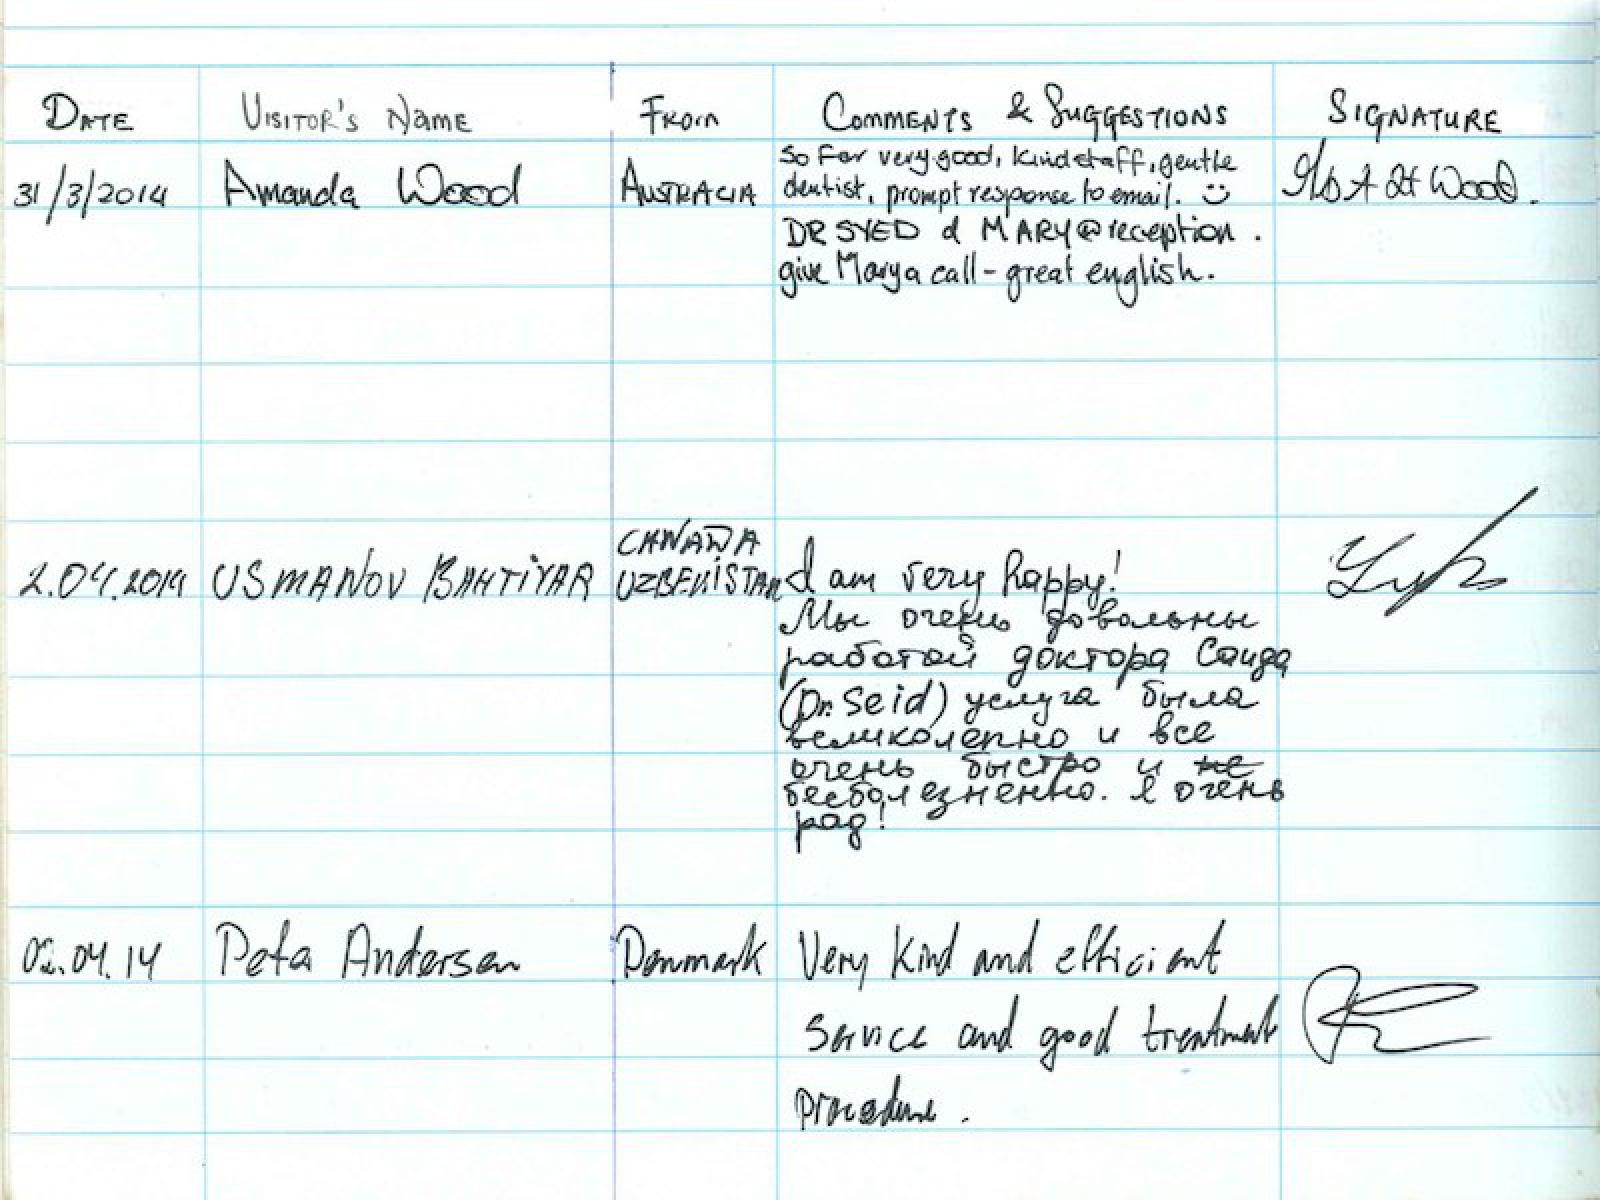 DATE VISITOR'S NAME FROM COMMENTS & SUGGESTIONS SIGNATURE
31/3/2014 Amanda Wood AUSTRALIA
So Far very good, kind staff, gentle
dentist, prompt response to email. ☺
DR SYED & MARY @ reception.
give Mary a call - great english.
2.04.2014 USMANOV BAHTIYAR
CANADA
UZBEKISTAN
I am very happy!
Мы очень довольны
работой доктора Саида
(Dr. Seid) услуга была
великолепно и все
очень быстро и не
безболезненно. Я очень
рад!
02.04.14 Peta Andersen Denmark
Very kind and efficient
service and good treatment
procedure.